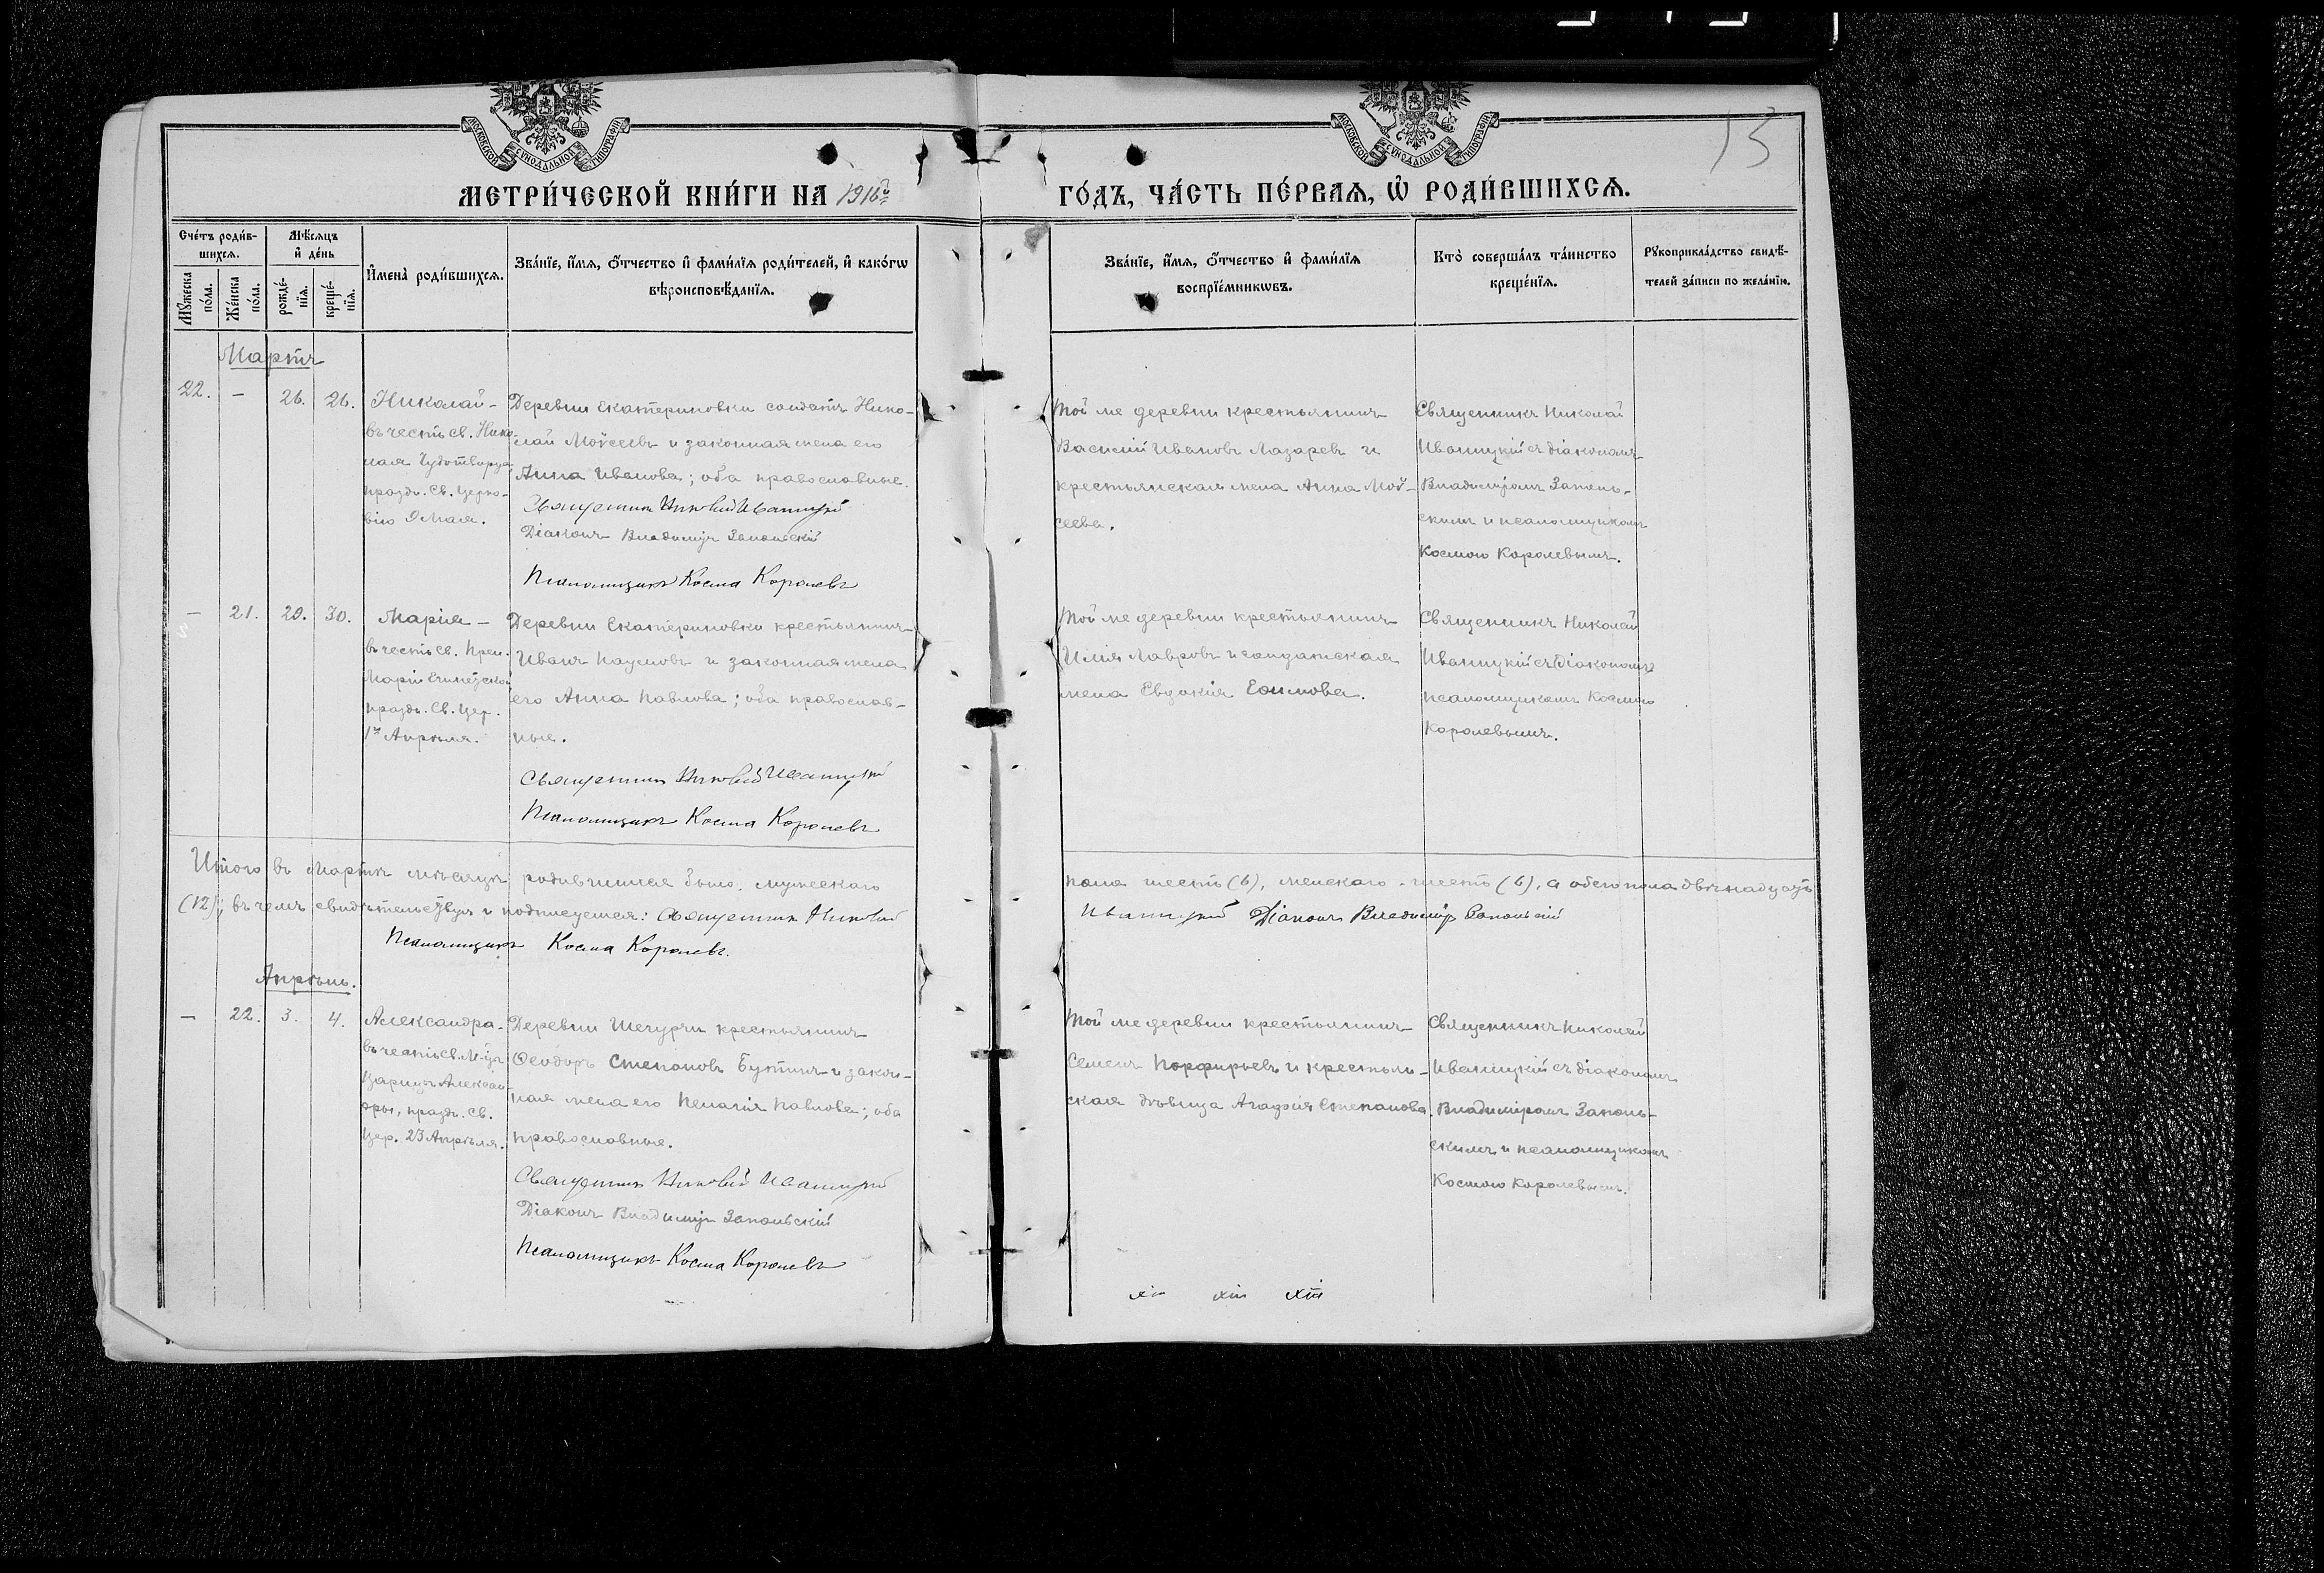 13
МОСКОВСКОЙ СѴНОДАЛЬНОЙ ТИПОГРАФІИ
МОСКОВСКОЙ СѴНОДАЛЬНОЙ ТИПОГРАФІИ
МЕТРИ́ЧЕСКОЙ КНИ́ГИ НА 1916й ГО́ДЪ, ЧА́СТЬ ПЕ́РВАѦ, Ѡ҆ РОДИ́ВШИХСѦ.
Сче́тъ роди́в-
шихсѧ.
Мꙋ́жеска по́ла.
Же́нска по́ла.
Мѣ́сѧцъ
и҆ де́нь
рожде́-
нїѧ.
креще́-
нїѧ.
И҆мена̀ роди́вшихсѧ.
Зва́нїе, и҆́мѧ, ѻ҆́тчество и҆ фами́лїѧ роди́телей, и҆ како́гѡ
вѣроисповѣ́данїѧ.
Зва́нїе, и҆́мѧ, ѻ҆́тчество и҆ фами́лїѧ
воспрїе́мникѡвъ.
Кто̀ соверша́лъ та́инство
креще́нїѧ.
Рꙋкоприкла́дство свидѣ́-
телей за́писи по жела́нїю.
Мартъ
22. – 26. 26.
Николай –
въ честь св. Нико-
лая Чудотворца,
праздн. Св. Церко-
вію 9 Мая.
Деревни Екатериновки солдатъ Нико-
лай Мойсеевъ и законная жена его
Анна Иванова; оба православные.
Священникъ Николай Иваницкій
Діаконъ Владиміръ Запольскій
Псаломщикъ Косма Королевъ
Той же деревни крестьянинъ
Василій Ивановъ Лазаревъ и
крестьянская жена Анна Мой-
сеева.
Священникъ Николай
Иваницкій съ діакономъ
Владиміромъ Заполь-
скимъ и псаломщикомъ
Космою Королевымъ.
– 21. 29. 30.
Марія –
въ честь св. Преп.
Маріи Египетской,
праздн. Св. Цер.
1го Апрѣля.
Деревни Екатериновки крестьянинъ
Иванъ Наумовъ и законная жена
его Анна Павлова; оба православ-
ные.
Священникъ Николай Иваницкій
Псаломщикъ Косма Королевъ
Той же деревни крестьянинъ
Илія Лавровъ и солдатская
жена Евдокія Ефимова.
Священникъ Николай
Иваницкій съ
псаломщикомъ Космою
Королевымъ.
Итого въ Мартѣ мѣсяцѣ родившихся было: мужескаго пола шесть (6), женскаго – шесть (6), а обоего пола двѣнадцать
(12); въ чемъ свидѣтельствуемъ и подписуемся: Священникъ Николай Иваницкій Діаконъ Владиміръ Запольскій
Псаломщикъ Косма Королевъ.
Апрѣль.
– 22. 3. 4.
Александра –
въ честь св. М-цы
Царицы Алексан-
дры, праздн. Св.
Цер. 23 Апрѣля.
Деревни Шечурги крестьянинъ
Ѳеодоръ Степановъ Бутинъ и закон-
ная жена его Пелагія Павлова; оба
православные.
Священникъ Николай Иваницкій
Діаконъ Владиміръ Запольскій
Псаломщикъ Косма Королевъ
Той же деревни крестьянинъ
Семенъ Порфирьевъ и крестьян-
ская дѣвица Агафія Степанова.
Священникъ Николай
Иваницкій съ діакономъ
Владиміромъ Заполь-
скимъ и псаломщикомъ
Космою Королевымъ.